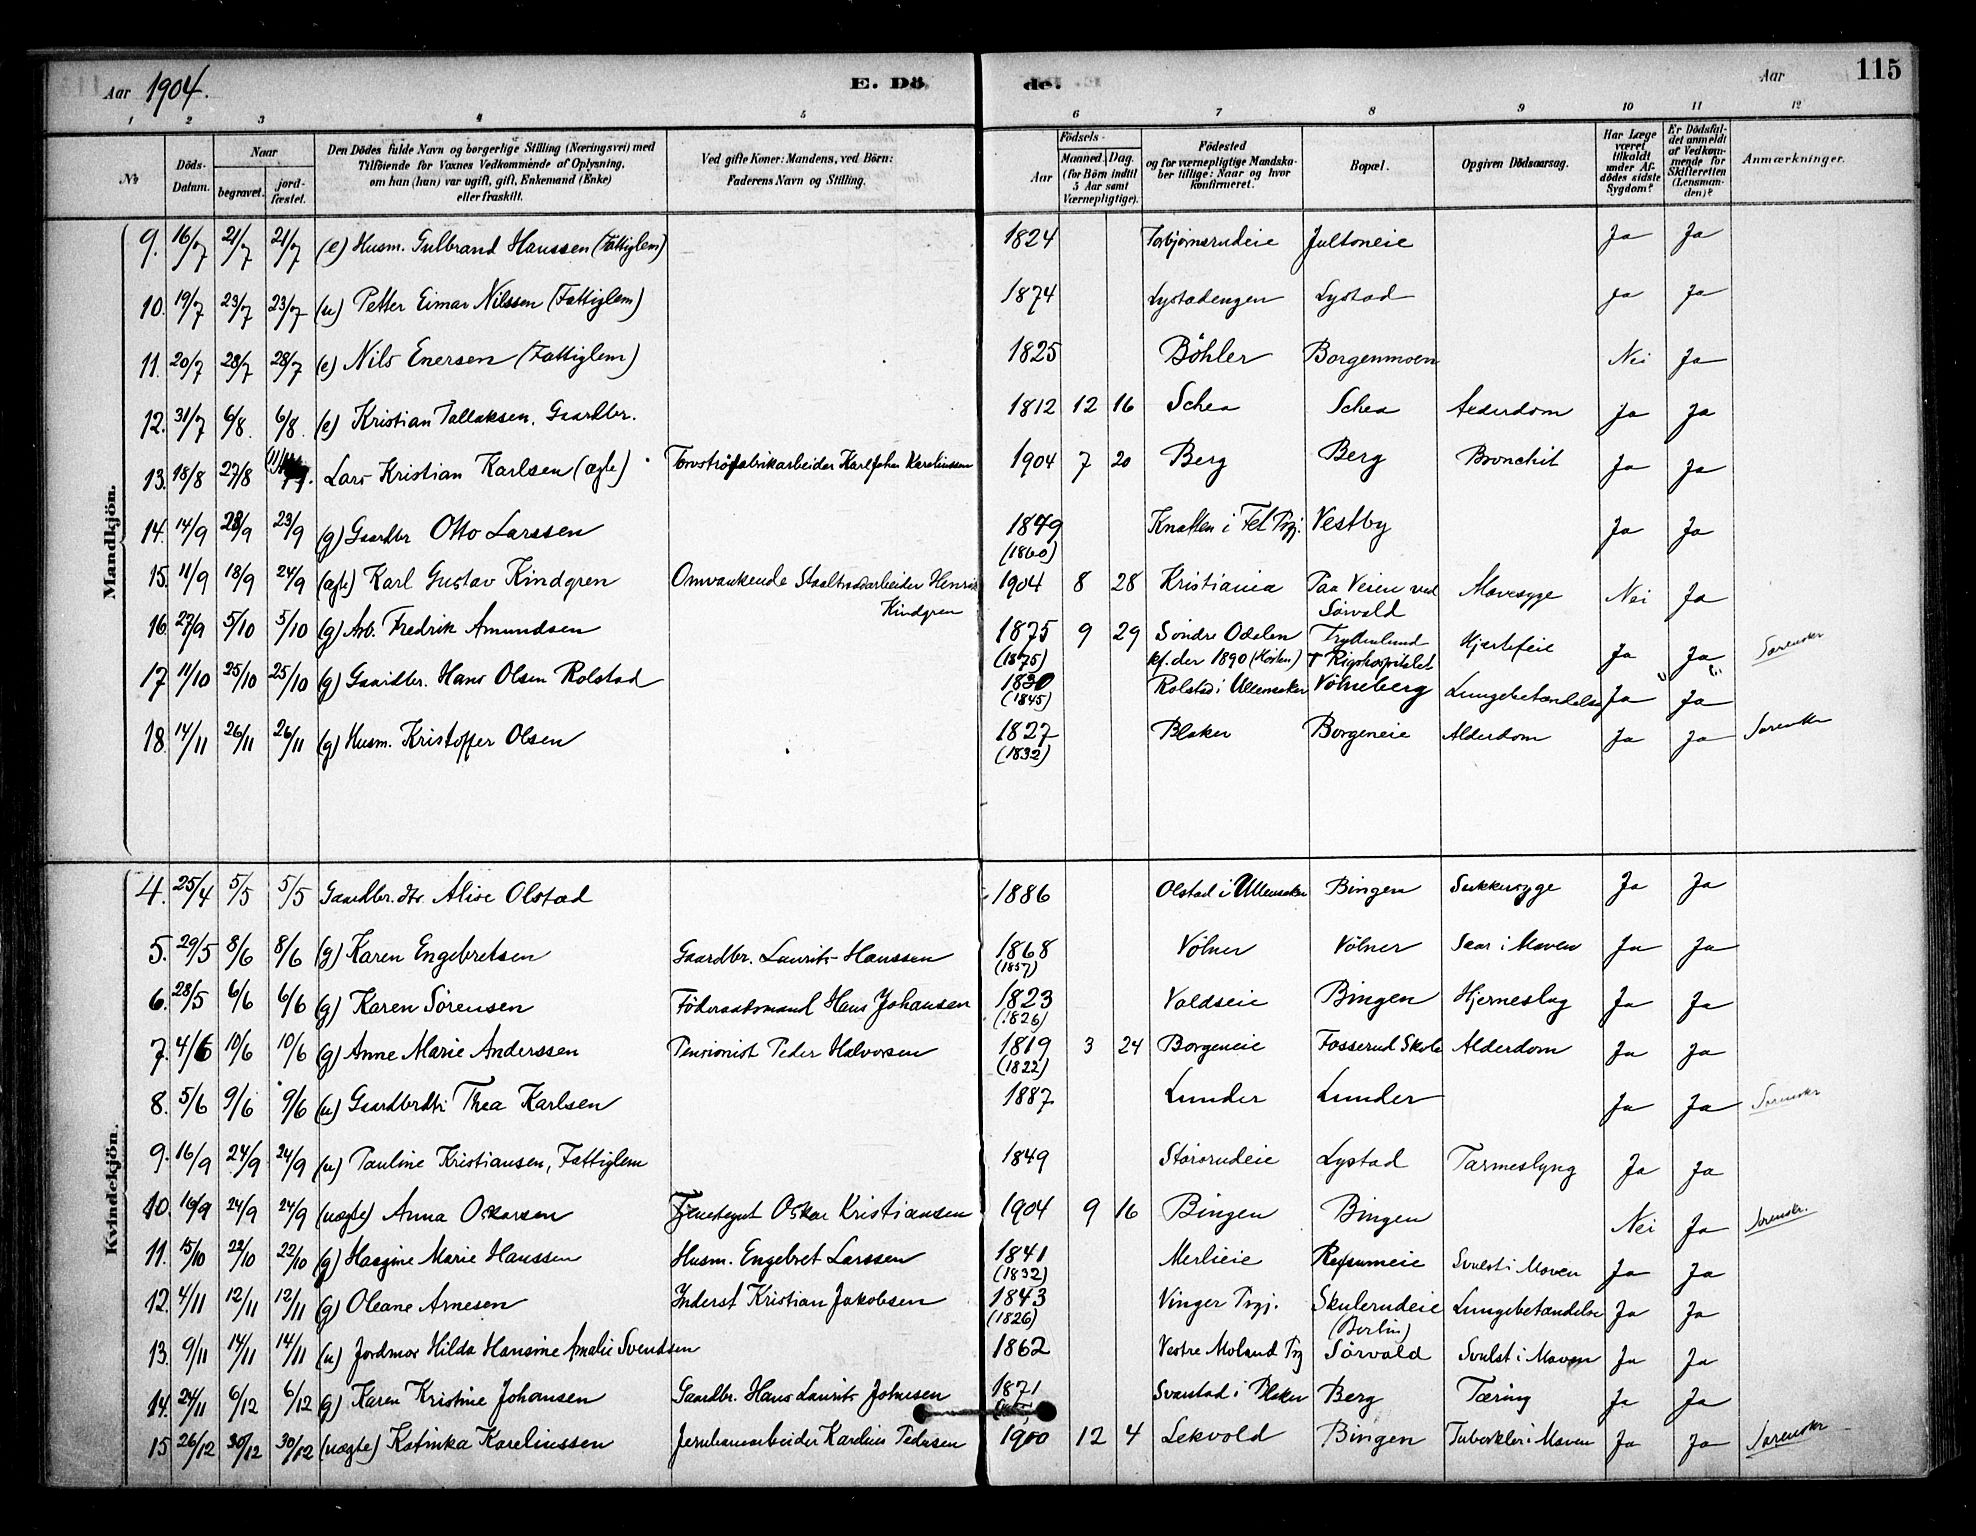 Aar 1904. E. Dö de. Aar 115
1 2 3 4 5 6 7 8 9 10 11 12
No
Döds-Datum.
Naar
begravet.
jord-fæstet.
Den Dödes fulde Navn og borgerlige Stilling (Næringsvei) med
Tilföiende for Voxnes Vedkommende af Oplysning,
om han (hun) var ugift, gift, Enkemand (Enke)
eller fraskilt.
Ved gifte Koner: Mandens, ved Börn:
Faderens Navn og Stilling.
Födsels-
Aar
Maaned. Dag.
(for Börn indtil
5 Aar samt
Værnepligtige).
Födested
og for værnepligtige Mandska-
ber tillige: Naar og hvor
konfirmeret.
Bopæl.
Opgiven Dödsaarsag.
Har Læge
været
tilkaldt
under Af-
dödes sidste
Sygdom?
Er Dödsfal-
det anmeldt
af Vedkom-
mende for
Skifteretten
(Lensman-
den)?
Anmærkninger.
Mandkjön.
9. 16/7 21/7 21/7 (e) Husm. Gulbrand Hanssen (Fattiglem) 1824 Torbjørnsrudeie Jultoneie Ja Ja
10. 19/7 23/7 23/7 (u) Petter Eimar Nilssen (Fattiglem) 1874 Lystadengen Lystad Ja Ja
11. 20/7 28/7 28/7 (e) Nils Enersen (Fattiglem) 1825 Böhler Borgenmoen Nei Ja
12. 31/7 6/8 6/8 (e) Kristian Tallaksen, Gaardbr. 1812 12 16 Schea Schea Alderdom Ja Ja
13. 18/8 27/8 Lars Kristian Karlsen (ægte) Torvströfabrikarbeider Karl Johan Karelinssen 1904 7 20 Berg Berg Bronchit Ja Ja
14. 14/9 23/9 23/9 (g) Gaardbr Otto Larssen 1849 (1860) Knatten i Fet Prgj. Vestby Ja Ja
15. 11/9 18/9 24/9 (ægte) Karl Gustav Kindgren Omvankende Staaltraadarbeider Henrik
Kindgren 1904 8 28 Kristiania Paa Veien ved
Sörvald Mavesyge Nei Ja
16. 27/9 5/10 5/10 (g) Arb. Fredrik Amundsen 1875 (1875) 9 29 Söndre Odalen
kf. der 1890 (Hösten)
† Rigshospitalet Hjertefeil Ja Ja Sorenskr
17 11/10 25/10 25/10 (g) Gaardbr. Hans Olsen Rolstad 1830 (1845) Rolstad i Ullensaker Völneberg Lungebetændelse Ja Ja
18. 14/11 26/11 26/11 (g) Husm. Kristoffer Olsen 1827 (1832) Blaker Borgeneie Alderdom Ja Ja Sorenskr
Kvindekjön.
4. 25/4 5/5 5/5 Gaardbr. dtr. Alise Olstad 1886 Olstad i Ullensaker Bingen Sukkersyge Ja Ja
5. 29/5 8/6 8/6 (g) Karen Engebretsen Gaardbr. Laurits Hanssen 1868 (1857) Völner Völner Saar i Maven Ja Ja
6. 28/5 6/6 6/6 (g) Karen Sörensen Föderaadsmand Hans Johansen 1823 (1826) Valdseie Bingen Hjerneslag Ja Ja
7. 4/6 10/6 10/6 (g) Anne Marie Anderssen Pensionist Peder Halvorsen 1819 (1822) 3 24 Borgeneie Fosserud Skole Alderdom Ja Ja
8. 5/6 9/6 9/6 (u) Gaardbrdtr Thea Karlsen 1887 Lunder Lunder Ja Ja Sorenskr
9. 16/9 24/9 24/9 (u) Pauline Kristiansen, Fattiglem 1849 Stórorudeie Lystad Tarmeslyng Ja Ja
10. 19/9 24/9 24/9 (uægte) Anna Oskarsen Tjenestegut Oskar Kristiansen 1904 9 16 Bingen Bingen Nei Ja Sorenskr.
11. 15/10 22/10 22/10 (g) Hasgine Marie Hanssen Husm. Engebret Larssen 1841 (1832) Merlieie Refsumeie Svulst i Maven Ja Ja
12. 4/11 12/11 12/11 (g) Oleane Arnesen Inderst Kristian Jakobsen 1843 (1826) Vinger Prgj. Skulerudeie
(Berlin) Lungebetændelse Ja Ja
13. 9/11 14/11 14/11 (u) Jordmor Hilda Hansine Amalie Svendsen 1862 Vestre Moland Prg Sörvald Svulst i Maven Ja Ja
14. 24/11 6/12 6/12 (g) Karen Kristine Johansen Gaardbr. Hans Laurits Johnsen 1871 Svarstad i Blaker Berg Tæring Ja Ja
15 26/12 30/12 30/12 (uægte) Katinka Kareliussen Jernbanearbeider Karelius Pedersen 1900 12 4 Lekvold Bingen Tuberkler i Maven Ja Ja Sorenskr